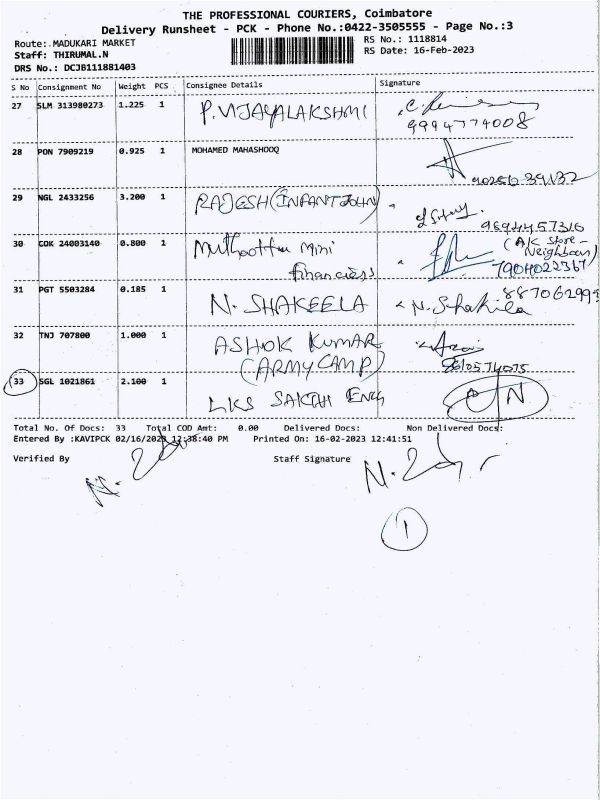 THE PROFESSIONAL COURIERS, Coimbatore
Delivery Runsheet - PCK - Phone No.:0422-3505555 - Page No.:3
Route: MADUKARI MARKET
RS No.: 1118814
Staff: THIRUMAL.N
RS Date: 16-Feb-2023
DRS No.: DCJB111881403
S No Consignment No Weight PCS Consignee Details Signature
27 SLM 313980273 1.225 1 P. VIJAYALAKSHMI
9994774008
28 PON 7909219 0.925 1 MOHAMED MAHASHOOQ
29 NGL 2433256 3.200 1 RAJESH (INFANT JOHN)
9694457316
30 COK 24003140 0.800 1 Muthoottu mini (A/K Store - Neighbour)
financiess 7904022367
31 PGT 5503284 0.185 1 N. SHAKEELA N. Shakila
32 TNJ 707800 1.000 1 ASHOK KUMAR
(ARMY CAMP)
33 SGL 1021861 2.100 1 LKS SAKTHI ENG O/N
Total No. Of Docs: 33 Total COD Amt: 0.00 Delivered Docs: Non Delivered Docs:
Entered By :KAVIPCK 02/16/2023 12:38:40 PM Printed On: 16-02-2023 12:41:51
Verified By Staff Signature
1